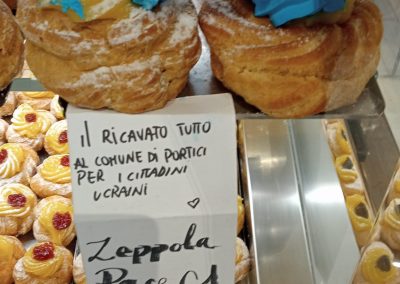 il RICAVATO TUTTO
AL COMUNE DI PORTICI
PER I CITTADINI
UCRAINI
Zeppola